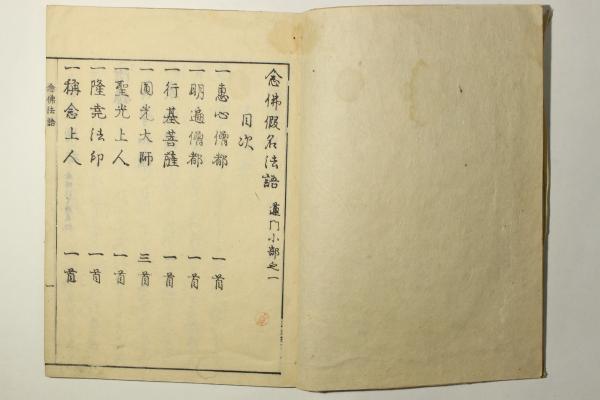 念佛假名法語 蓮門小部之一
目次
一惠心僧都 一首
一明遍僧都 一首
一行基菩薩 一首
一圓光大師 三首
一聖光上人 一首
一隆堯法印 一首
一稱念上人 一首
念佛法語 一